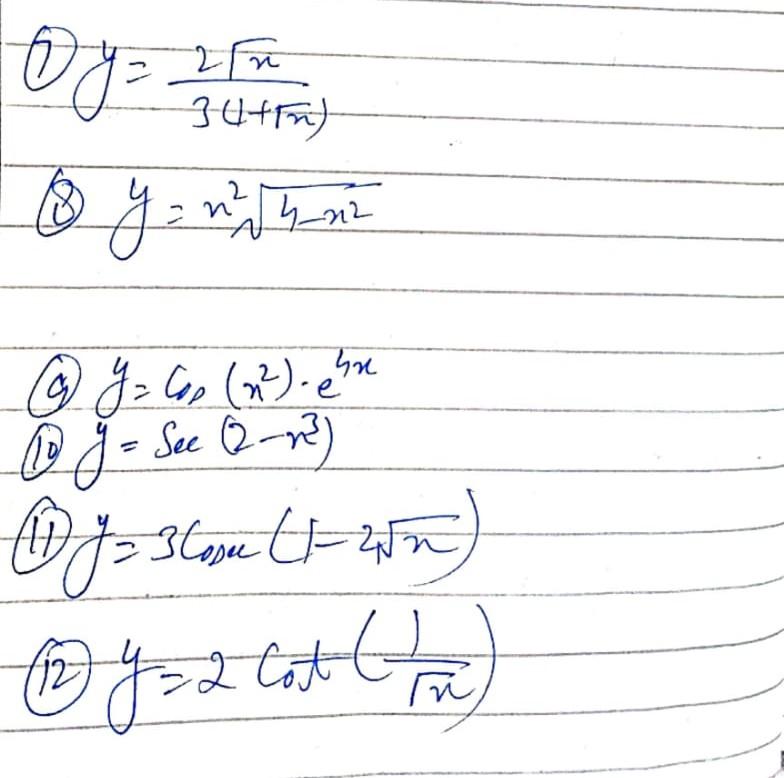 ⑦ y = 2√x / 3(1+√x)
⑧ y = x²√4-x²
⑨ y = Cos (x²) · e⁴ˣ
⑩ y = Sec (2-x³)
⑪ y = 3 Cosec (1-2√x)
⑫ y = 2 Cot (1/√x)